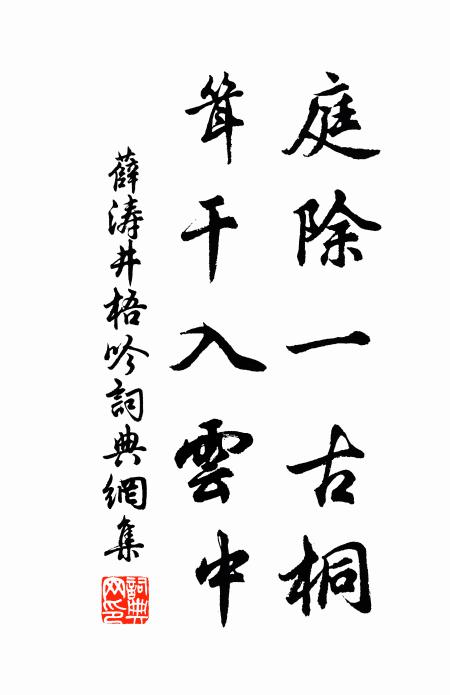 庭除一古桐
耸干入雲中
薛涛井梧吟詞典網集
詞典网印